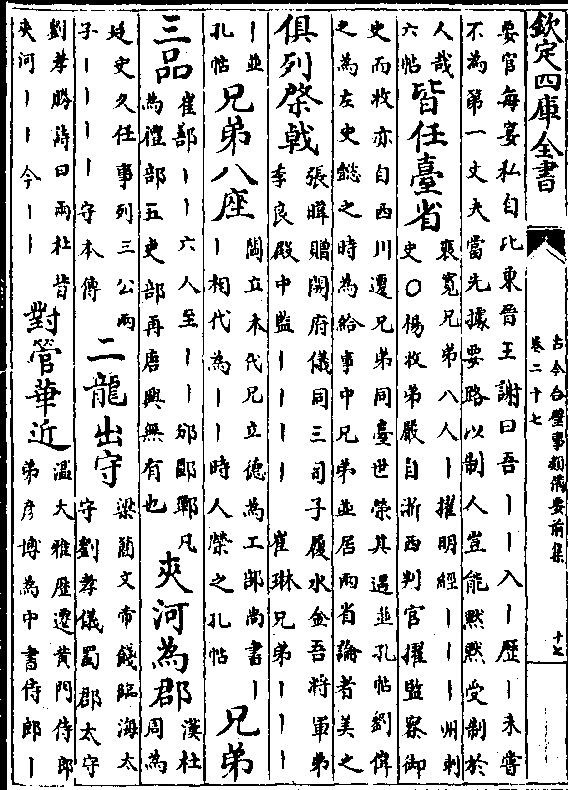 欽定四庫全書
古今合璧事類備要前集
卷二十七
十七
要官每宴私自比東晉王謝曰吾丨丨入丨歷丨未嘗
不為第一丈夫當先據要路以制人豈能黙黙受制於
人哉
六帖
皆任臺省
裴寬兄弟八人丨擢明經丨丨丨州刺
史〇楊牧弟嚴自浙西判官擢監察御
史而牧亦自西川遷兄弟同臺世榮其遇並孔帖劉偉
之為左史懿之時為給事中兄弟並居兩省論者美之
俱列棨戟
張暐贈開府儀同三司子履氷金吾將軍弟
李良殿中監丨丨丨丨崔琳兄弟丨丨丨
丨並
孔帖
兄弟八座
閻立本代兄立德為工部尚書丨
丨相代為丨丨時人榮之孔帖
兄弟
三品
崔鄯丨丨六人至丨丨邠郾鄲凡
為禮部五吏部再唐興無有也
夾河為郡
漢杜
周為
廷史久任事列三公兩
子丨丨丨丨守本傳
二龍出守
梁蕳文帝餞臨海太
守劉孝儀蜀郡太守
劉孝勝詩曰兩杜昔
夾河丨丨今丨丨
對管華近
溫大雅歴遷黄門侍郎
弟彦博為中書侍郎丨